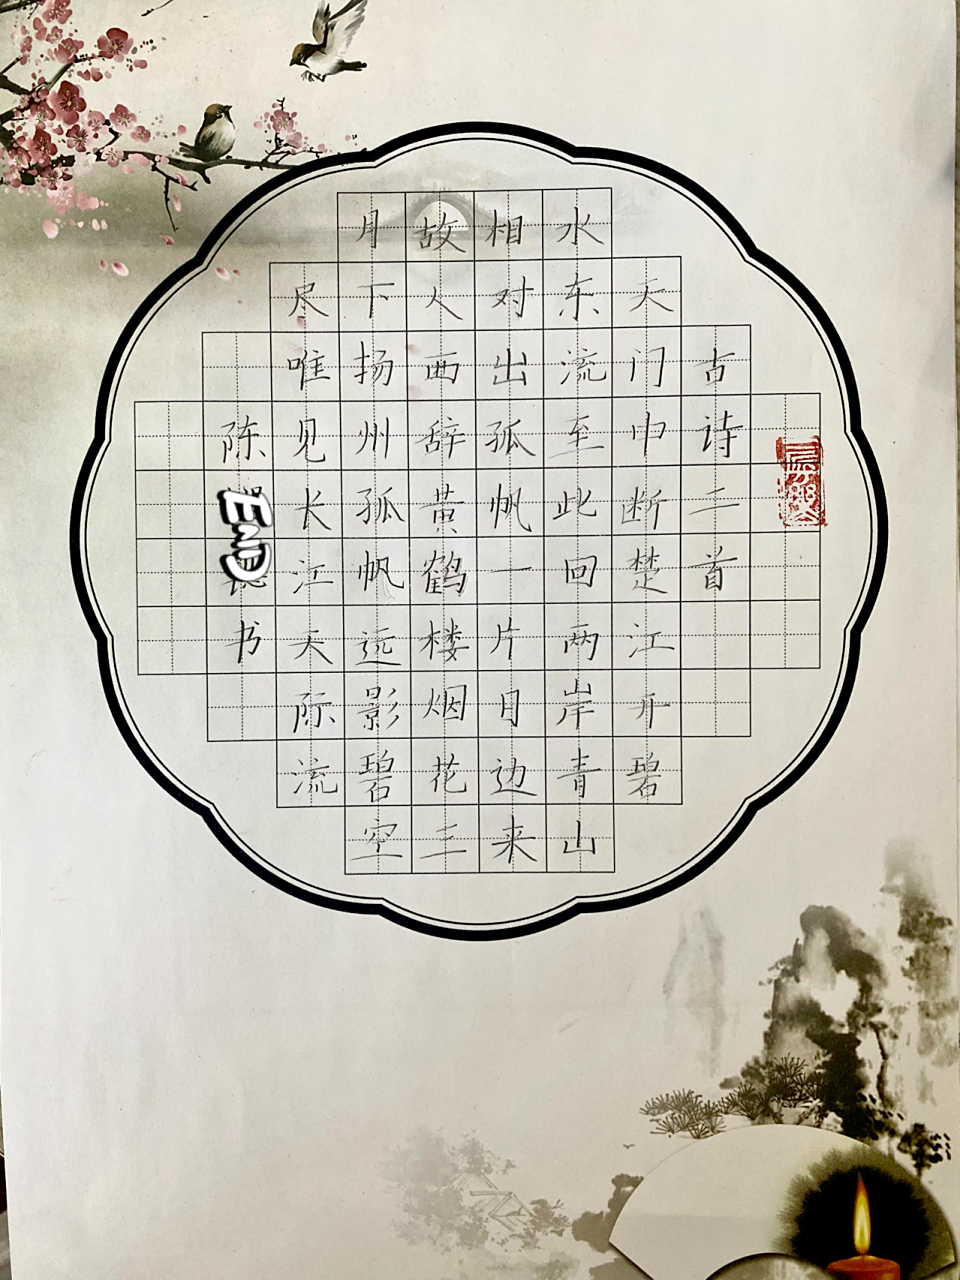 古诗二首
天门中断楚江开碧
水东流至此回两岸青山
相对出孤帆一片日边来
故人西辞黄鹤楼烟花三
月下扬州孤帆远影碧空
尽唯见长江天际流
陈书
END